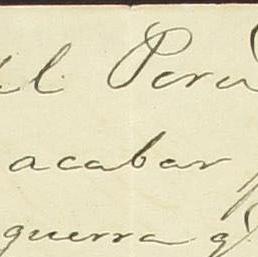 el Perú
acabar
guerra q